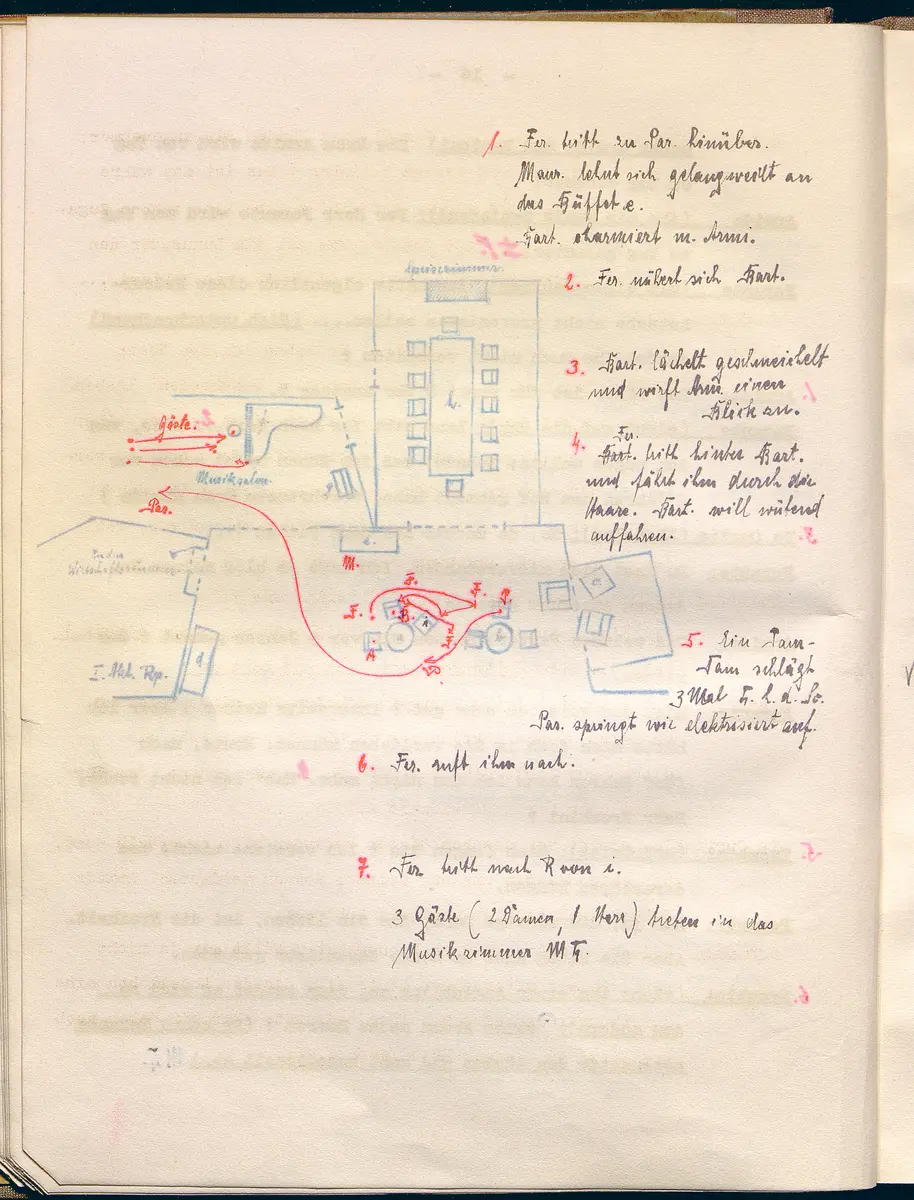 1. Fer. tritt zu Par. hinüber.
Maur. lehnt sich gelangweilt an
das Büffet e.
Bart. charmiert m. Armi.
Speisezimmer.
2. Fer. nähert sich Bart.
3. Bart. lächelt geschmeichelt
und wirft Arm. einen
Blick zu.
Gäste.
Musiksalon.
Fer.
4. Bart. tritt hinter Bart.
und fährt ihm durch die
Haare. Bart. will wütend
auffahren.
Par.
h.
g
e.
M.
In den
F.
F.
F.
P.
B.
A
A
a
b
c
d
P.
I. Akt.
5. Ein Tam-
Tam schlägt
3 Mal h. d. Sc.
Par. springt wie elektrisiert auf.
6. Fer. ruft ihm nach.
7. Fer tritt nach R von i.
3 Gäste (2 Damen, 1 Herr) treten in das
Musikzimmer